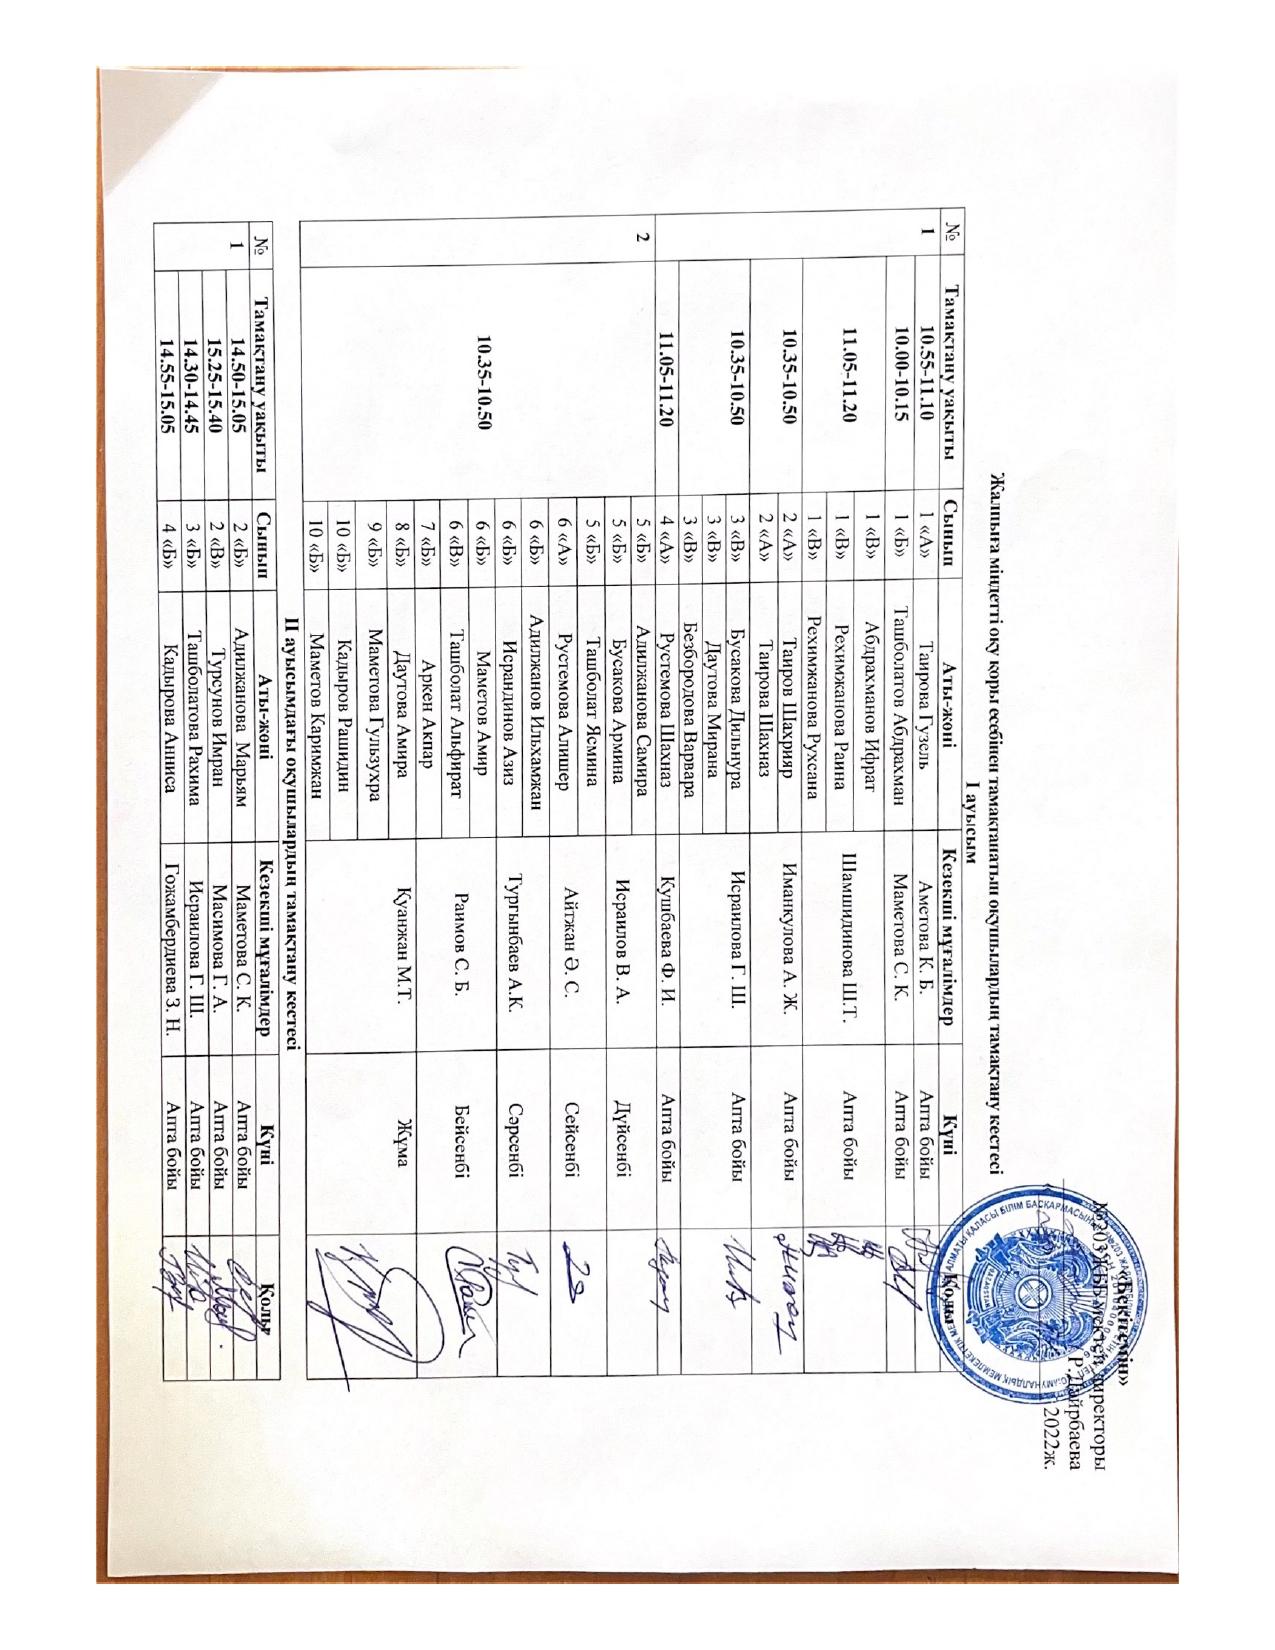 «Бекітемін»
№203 ЖББ мектеп директоры
Р.Дайрбаева
2022ж.
Жалпыға міндетті оқу қоры есебінен тамақтанатын оқушылардың тамақтану кестесі
I ауысым
№ Тамақтану уақыты Сынып Аты-жөні Кезекші мұғалімдер Күні Қолы
1 10.55-11.10 1 «А» Таирова Гузель Аметова К. Б. Апта бойы
10.00-10.15 1 «Б» Ташболатов Абдрахман Маметова С. К. Апта бойы
11.05-11.20 1 «В» Абдрахманов Ифрат Шамшидинова Ш.Т. Апта бойы
1 «В» Рехимжанова Раина
1 «В» Рехимжанова Рухсана
10.35-10.50 2 «А» Таиров Шахрияр Иманкулова А. Ж. Апта бойы
2 «А» Таирова Шахназ
10.35-10.50 3 «В» Бусакова Дильнура Исраилова Г. Ш. Апта бойы
3 «В» Даутова Мирана
3 «В» Безбородова Варвара
11.05-11.20 4 «А» Рустемова Шахназ Кушбаева Ф. И. Апта бойы
2 10.35-10.50 5 «Б» Адилжанова Самира Исраилов В. А. Дүйсенбі
5 «Б» Бусакова Армина
5 «Б» Ташболат Ясмина Айтжан Ә. С. Сейсенбі
6 «А» Рустемова Алишер
6 «Б» Адилжанов Ильхамжан Тургынбаев А.К. Сәрсенбі
6 «Б» Исрандинов Азиз
6 «Б» Маметов Амир Раимов С. Б. Бейсенбі
6 «В» Ташболат Альфират
7 «Б» Аркен Акпар
8 «Б» Даутова Амира Қуанжан М.Т. Жұма
9 «Б» Маметова Гульзухра
10 «Б» Кадыров Рашидин
10 «Б» Маметов Каримжан
II ауысымдағы оқушылардың тамақтану кестесі
№ Тамақтану уақыты Сынып Аты-жөні Кезекші мұғалімдер Күні Қолы
1 14.50-15.05 2 «Б» Адилжанова Марьям Маметова С. К. Апта бойы
15.25-15.40 2 «В» Турсунов Имран Масимова Г. А. Апта бойы
14.30-14.45 3 «Б» Ташболатова Рахима Исраилова Г. Ш. Апта бойы
14.55-15.05 4 «Б» Кадырова Анниса Гожамбердиева З. Н. Апта бойы